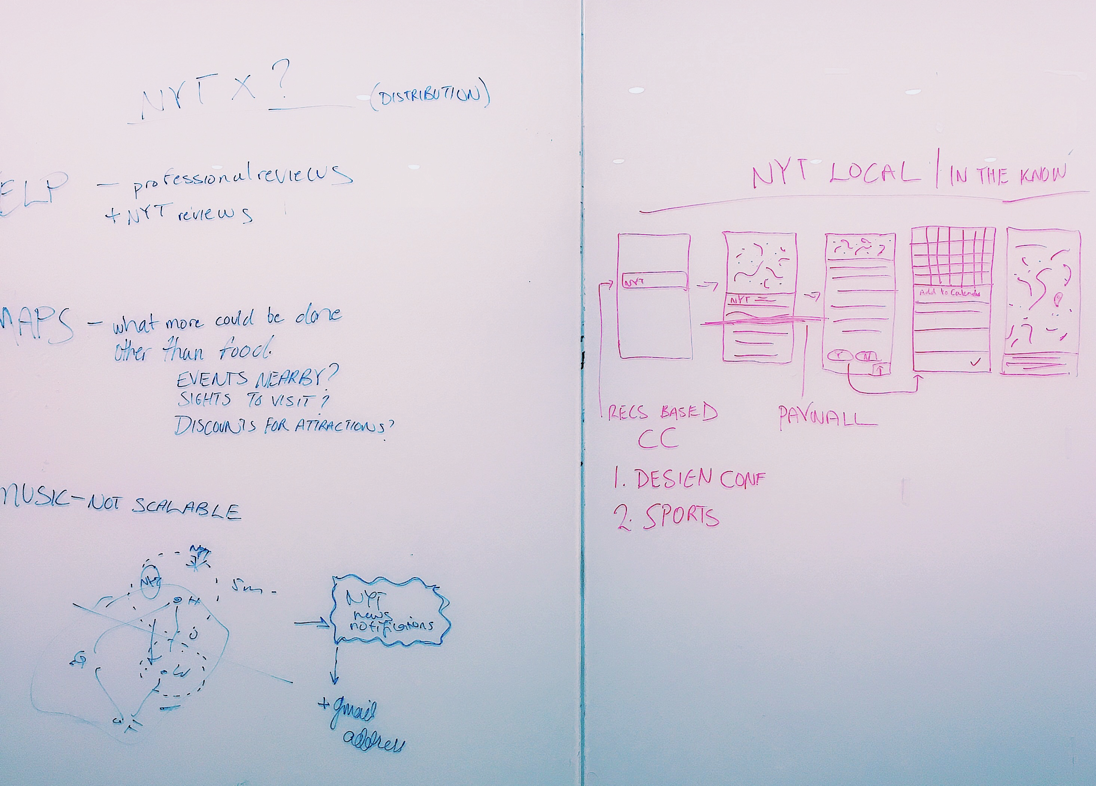 NYT X ? (DISTRIBUTION)
ELP — professional reviews
+ NYT reviews
MAPS — what more could be done
other than food.
EVENTS NEARBY?
SIGHTS TO VISIT?
DISCOUNTS FOR ATTRACTIONS?
MUSIC — NOT SCALABLE
NYT
5m
H
W
NYT
news
notifications
+ gmail
address
NYT LOCAL | IN THE KNOW
NYT
NYT
Add to Calendar
RECS BASED
CC
PAYWALL
1. DESIGN CONF
2. SPORTS